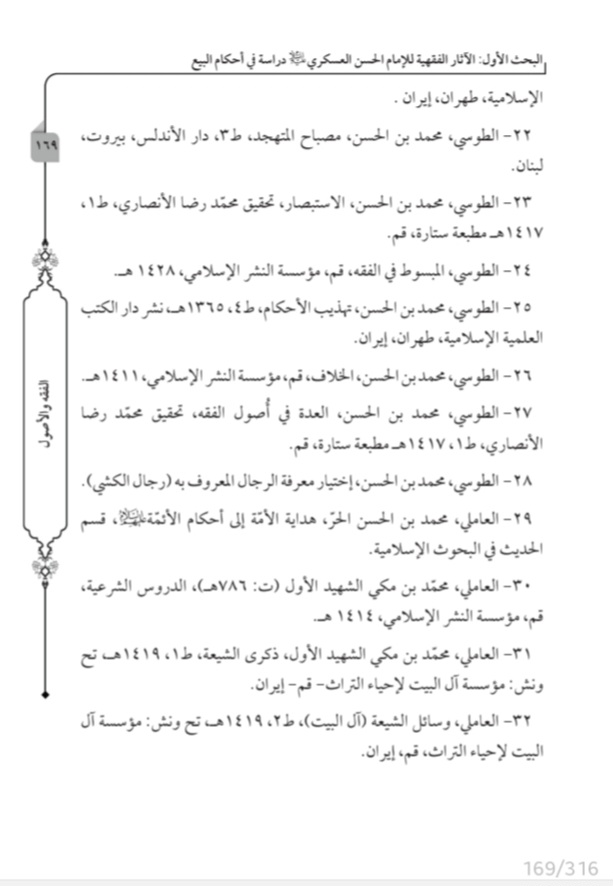 البحث الأول: الآثار الفقهية للإمام الحسن العسكري دراسة في أحكام البيع
الإسلامية، طهران، إيران .
١٦٩
٢٢- الطوسي، محمد بن الحسن، مصباح المتهجد، ط٣، دار الأندلس، بيروت،
لبنان.
٢٣- الطوسي، محمد بن الحسن، الاستبصار، تحقيق محمّد رضا الأنصاري، ط١،
١٤١٧هـ مطبعة ستارة، قم.
٢٤- الطوسي، المبسوط في الفقه، قم، مؤسسة النشر الإسلامي، ١٤٢٨ هـ.
٢٥- الطوسي، محمد بن الحسن، تهذيب الأحكام، ط٤، ١٣٦٥هـ، نشر دار الكتب
العلمية الإسلامية، طهران، إيران.
٢٦- الطوسي، محمد بن الحسن، الخلاف، قم، مؤسسة النشر الإسلامي، ١٤١١هـ.
٢٧- الطوسي، محمد بن الحسن، العدة في أُصول الفقه، تحقيق محمّد رضا
الأنصاري، ط١، ١٤١٧هـ مطبعة ستارة، قم.
٢٨- الطوسي، محمد بن الحسن، إختيار معرفة الرجال المعروف به (رجال الكشي).
٢٩- العاملي، محمد بن الحسن الحرّ، هداية الأمّة إلى أحكام الأئمّة، قسم
الحديث في البحوث الإسلامية.
٣٠- العاملي، محمّد بن مكي الشهيد الأول (ت: ٧٨٦هـ)، الدروس الشرعية،
قم، مؤسسة النشر الإسلامي، ١٤١٤ هـ.
٣١- العاملي، محمّد بن مكي الشهيد الأول، ذكرى الشيعة، ط١، ١٤١٩هـ، تح
ونش: مؤسسة آل البيت لإحياء التراث- قم- إيران.
٣٢- العاملي، وسائل الشيعة (آل البيت)، ط٢، ١٤١٩هـ، تح ونش: مؤسسة آل
البيت لإحياء التراث، قم، إيران.
الفقه والأصول
169/316